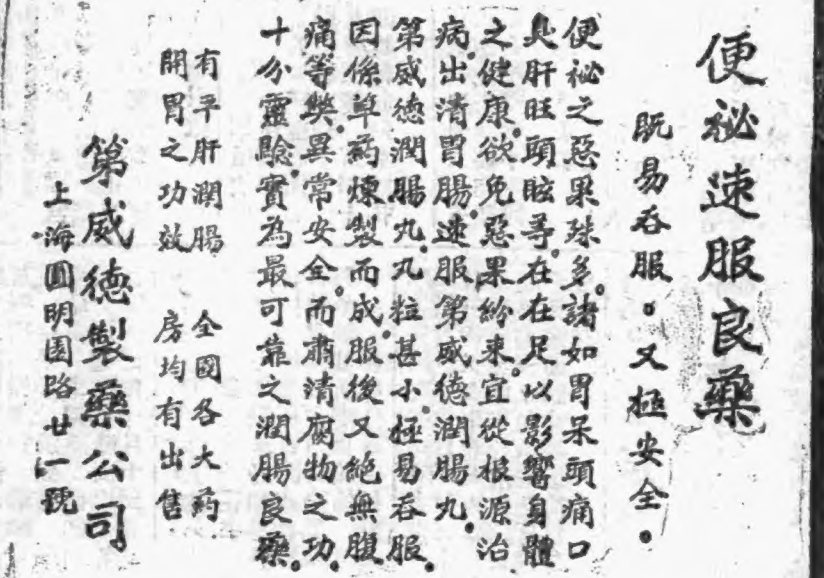 便祕速服良藥
既易吞服。又極安全。
便祕之惡果殊多。諸如胃呆頭痛口
臭肝旺頭眩等。在在足以影響身體
之健康。欲免惡果紛來。宜從根源治
病。出清胃腸。速服第威德潤腸丸。
第威德潤腸丸。丸粒甚小。極易吞服。
因係草药煉製而成。服後又絕無腹
痛等弊。異常安全。而肅清腐物之功。
十分靈驗。實為最可靠之潤腸良藥。
有平肝潤腸
開胃之功效
全國各大药
房均有出售
第威德製藥公司
上海圓明園路廿一號